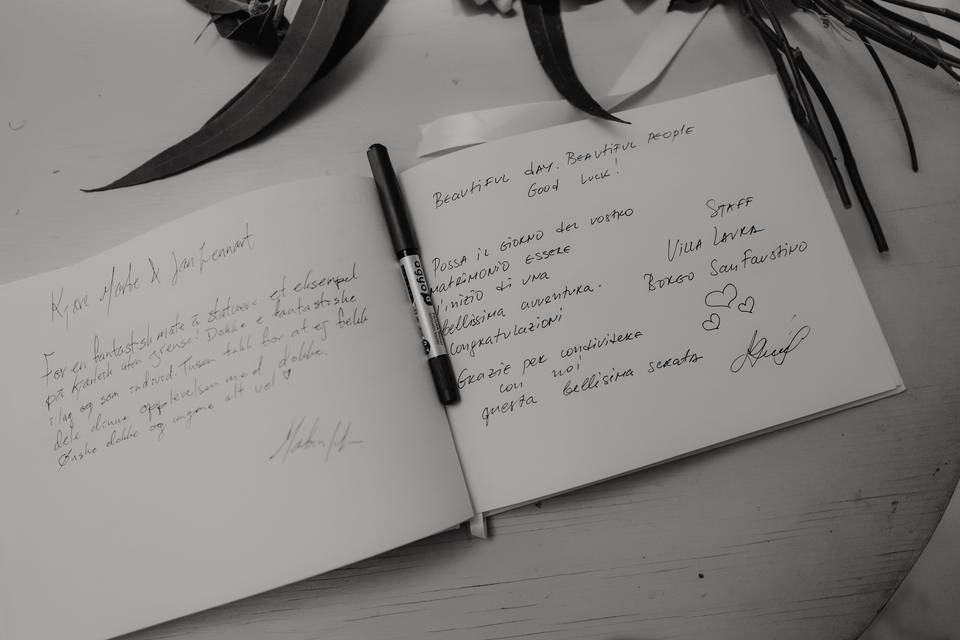 Kjære Marte & Jan Lennart
For en fantastisk måte å statuere et eksempel
på kjærleik uten grense! Dokke e fantastiske
i lag og som individ. Tusen takk for at eg fekk
dele denne opplevelsen med dokke.
Ønske dokke og ungene alt vel ♡
BEAUTIFUL dAY. BEAUTIFUL PEOPLE
Good LUCK!
POSSA IL GIORNO del VOSTRO
MATRIMONIO ESSERE
l'inizio di UNA
bellissima avventura.
Congratulazioni
GRAZIE per condividere
con noi
questa bellissima serata
STAFF
VILLA LAURA
BORGO SAN FAUSTINO